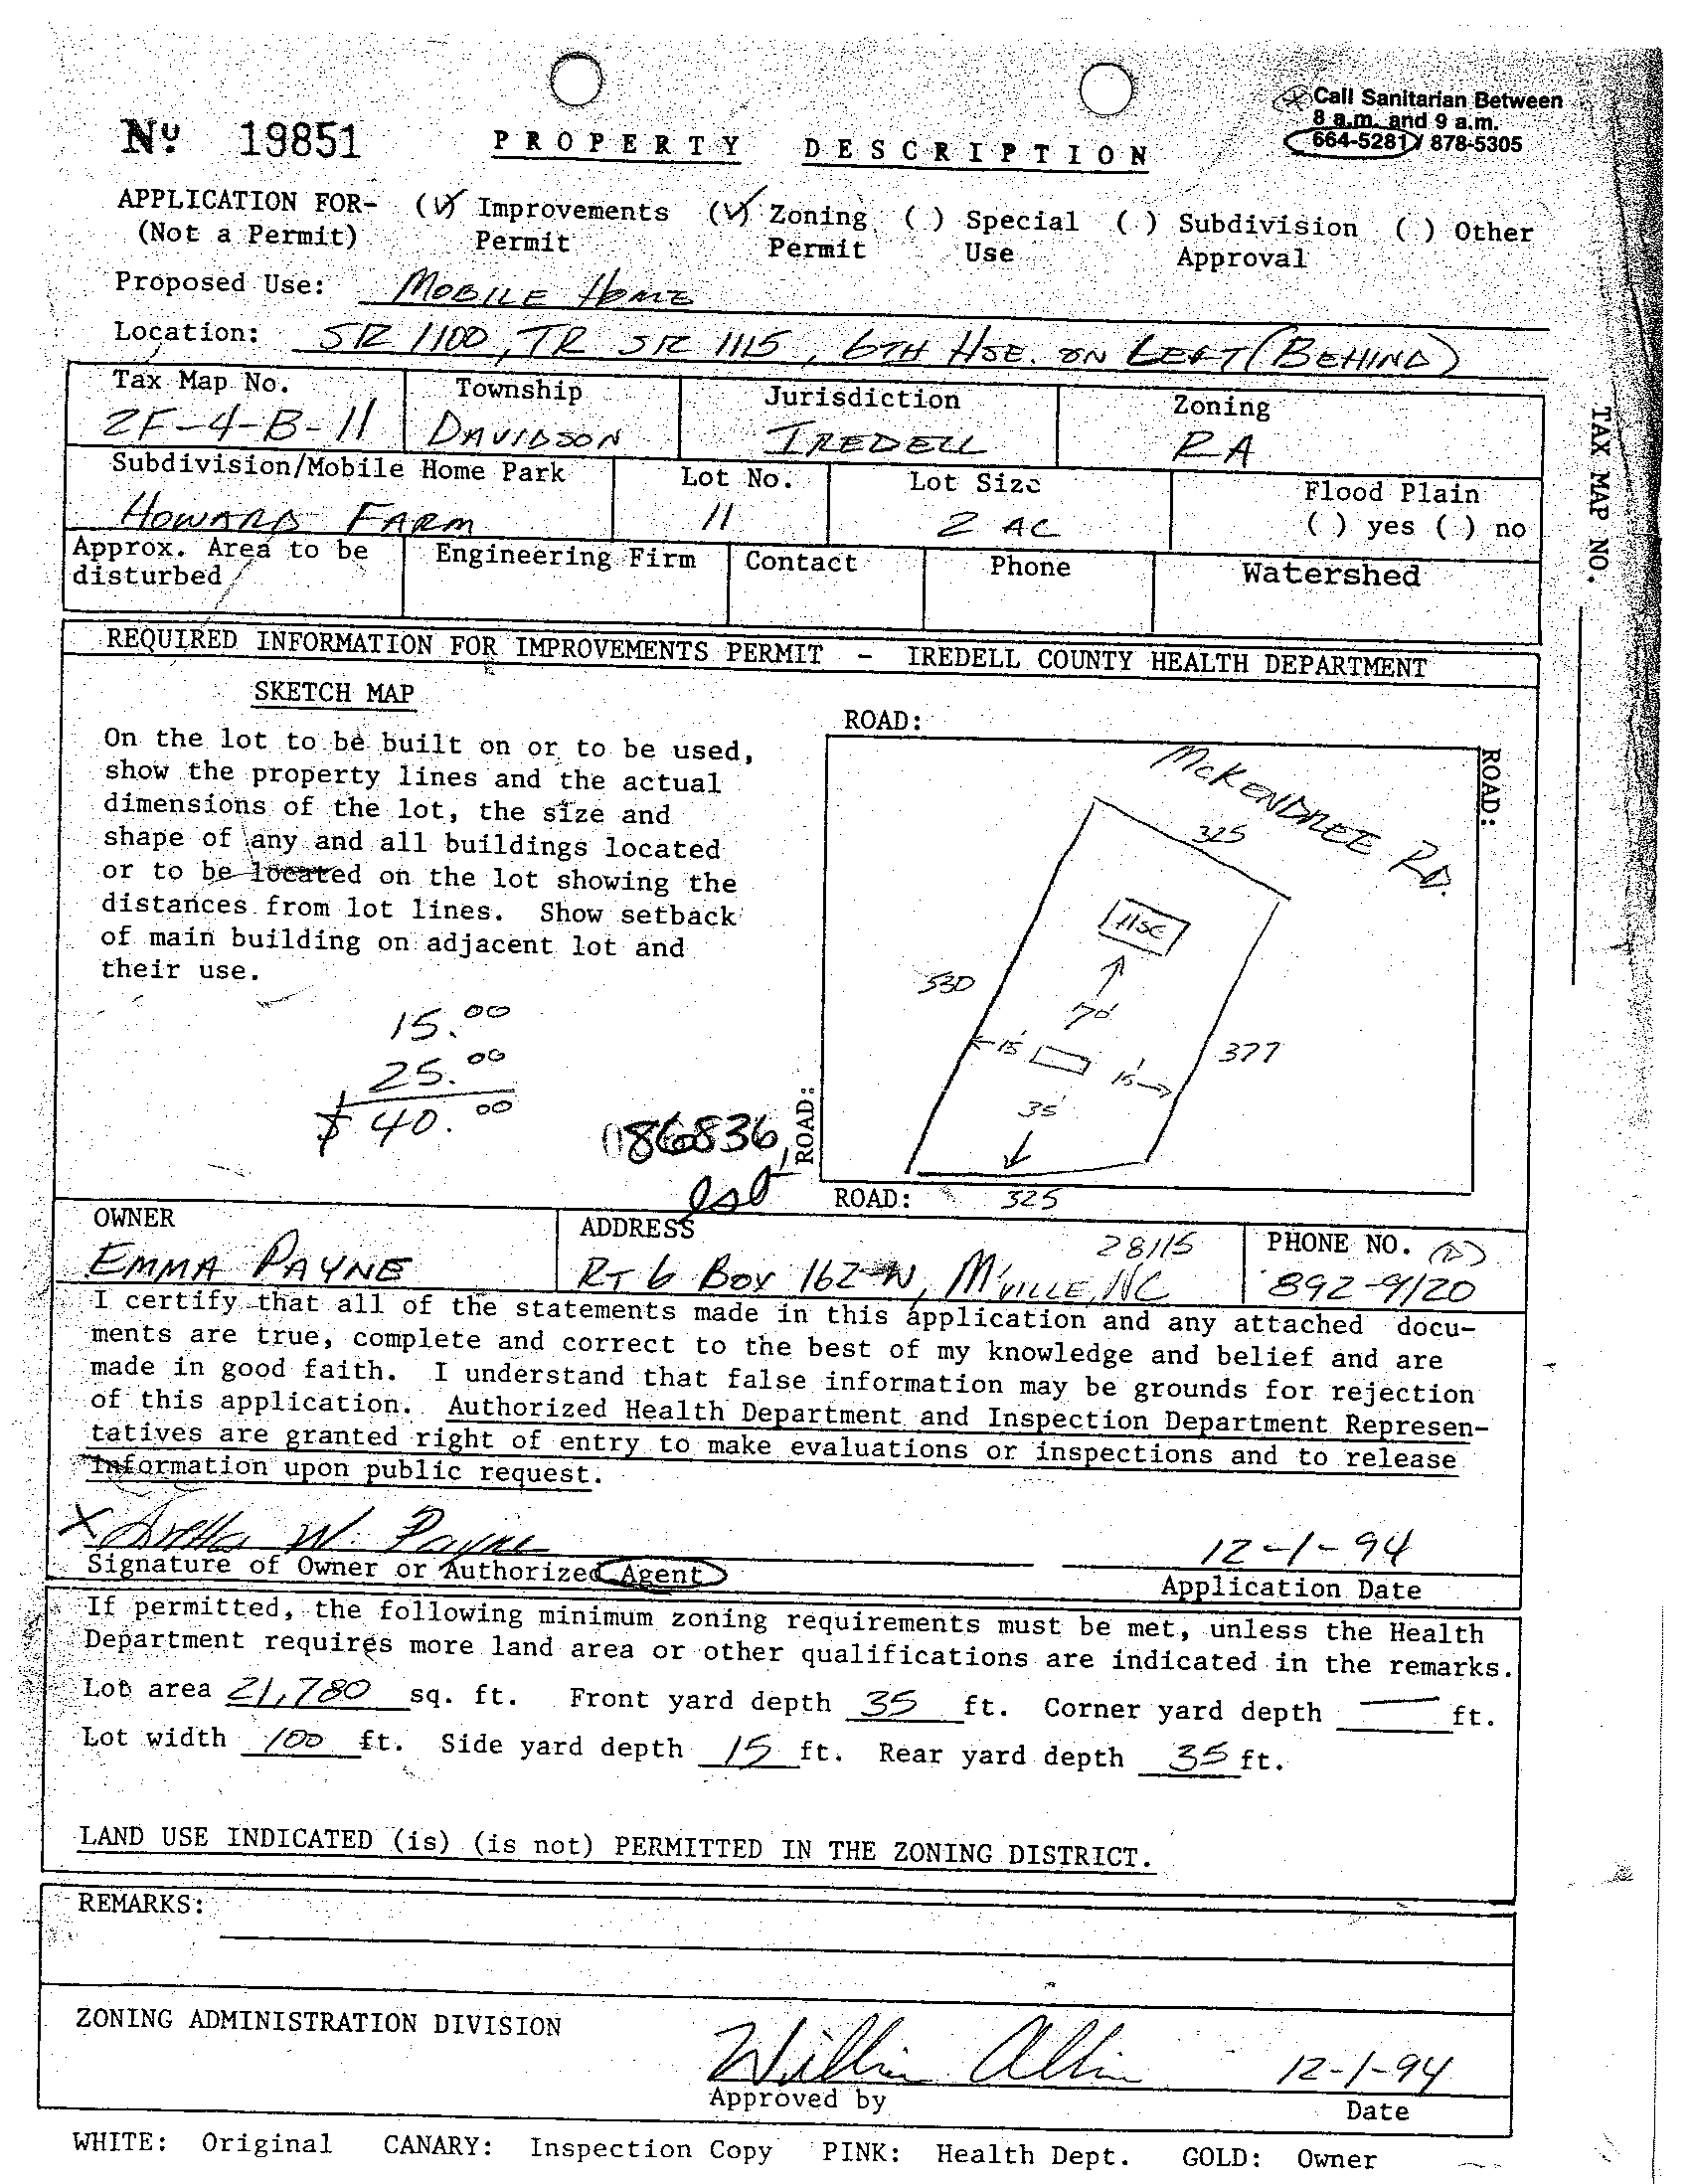 Call Sanitarian Between
8 a.m. and 9 a.m.
664-5281 / 878-5305
Nº 19851
PROPERTY DESCRIPTION
APPLICATION FOR- (✓) Improvements (✓) Zoning ( ) Special ( ) Subdivision ( ) Other
(Not a Permit) Permit Permit Use Approval
Proposed Use: MOBILE HOME
Location: SR 1100, TR SR 1115, 6TH HSE. ON LEFT (BEHIND)
Tax Map No. Township Jurisdiction Zoning
2F-4-B-11 DAVIDSON IREDELL RA
Subdivision/Mobile Home Park Lot No. Lot Size Flood Plain
HOWARD FARM 11 2 AC ( ) yes ( ) no
Approx. Area to be disturbed Engineering Firm Contact Phone Watershed
TAX MAP NO.
REQUIRED INFORMATION FOR IMPROVEMENTS PERMIT - IREDELL COUNTY HEALTH DEPARTMENT
SKETCH MAP
On the lot to be built on or to be used,
show the property lines and the actual
dimensions of the lot, the size and
shape of any and all buildings located
or to be located on the lot showing the
distances from lot lines. Show setback
of main building on adjacent lot and
their use.
15.00
25.00
$ 40.00
086836
ROAD:
ROAD:
McKENDREE RD.
325
HSE
530
70'
15'
15'
377
35'
ROAD:
ROAD: 325
OWNER ADDRESS PHONE NO.
EMMA PAYNE RT 6 BOX 162-N, M'VILLE, NC 28115 892-9120
I certify that all of the statements made in this application and any attached docu-
ments are true, complete and correct to the best of my knowledge and belief and are
made in good faith. I understand that false information may be grounds for rejection
of this application. Authorized Health Department and Inspection Department Represen-
tatives are granted right of entry to make evaluations or inspections and to release
information upon public request.
X W. Payne 12-1-94
Signature of Owner or Authorized Agent Application Date
If permitted, the following minimum zoning requirements must be met, unless the Health
Department requires more land area or other qualifications are indicated in the remarks.
Lot area 21,780 sq. ft. Front yard depth 35 ft. Corner yard depth — ft.
Lot width 100 ft. Side yard depth 15 ft. Rear yard depth 35 ft.
LAND USE INDICATED (is) (is not) PERMITTED IN THE ZONING DISTRICT.
REMARKS:
ZONING ADMINISTRATION DIVISION
12-1-94
Approved by Date
WHITE: Original CANARY: Inspection Copy PINK: Health Dept. GOLD: Owner